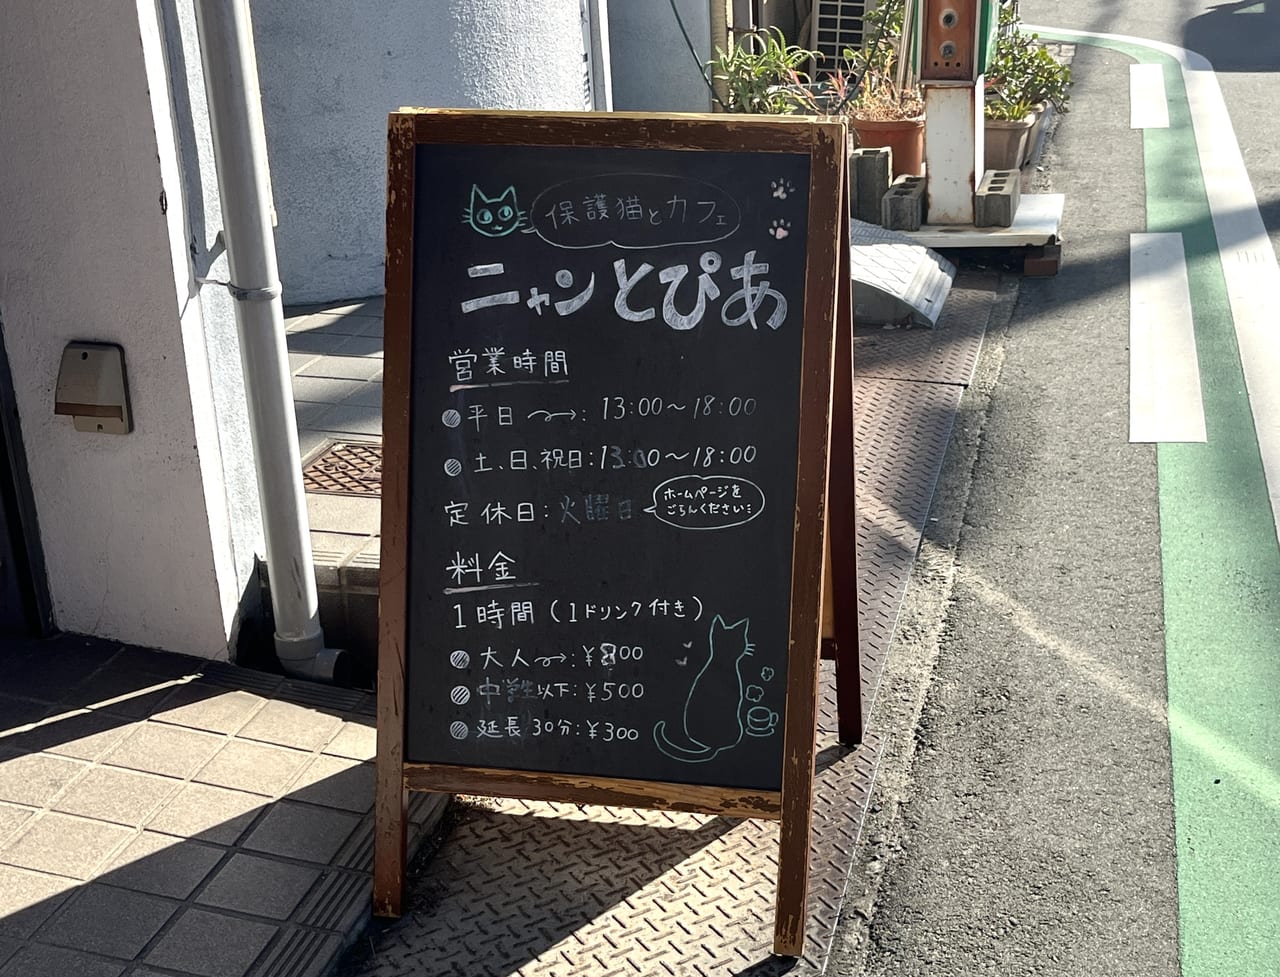 保護猫とカフェ
ニャンとぴあ
営業時間
平日 : 13:00～18:00
土、日、祝日:13:00～18:00
定休日: 火曜日
ホームページを
ごらんください
料金
1時間(1ドリンク付き)
大人 : ¥800
中学生以下: ¥500
延長30分: ¥300